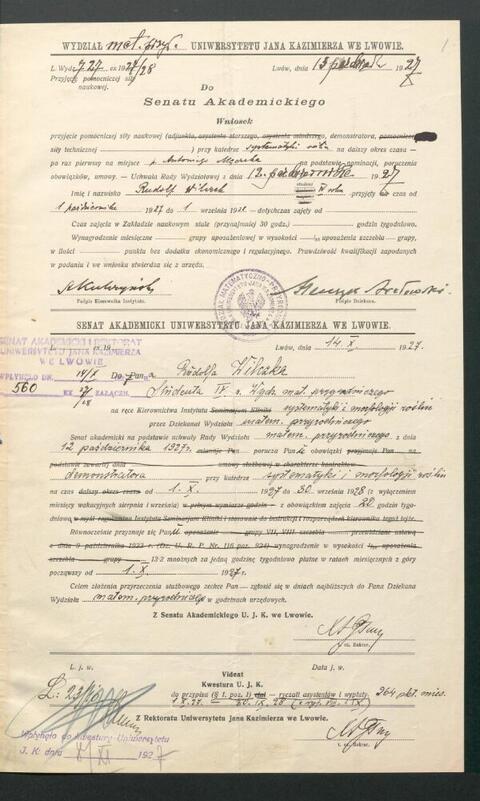 WYDZIAŁ mat. przyr. UNIWERSYTETU JANA KAZIMIERZA WE LWOWIE.
1
L. Wydz. 727 ex 1927/28
Lwów, dnia 13 październik 1927
Przyjęcie pomocniczej siły
naukowej.
Do
Senatu Akademickiego
Wniosek
przyjęcie pomocniczej siły naukowej (adjunkta, asystenta starszego, asystenta młodszego, demonstratora, pomocniczej
siły technicznej) przy katedrze systematyki roślin na dalszy okres czasu —
po raz pierwszy na miejsce p. Antoniego na podstawie nominacji, poruczenia
obowiązków, umowy. — Uchwała Rady Wydziałowej z dnia 12 października 1927
Imię i nazwisko Rudolf Wilczek przyjęty na czas od
1 października 1927 do 1 września 1928, dotychczas zajęty od
Czas zajęcia w Zakładzie naukowym stale (przynajmniej 30 godz.) godzin tygodniowo.
Wynagrodzenie miesięczne grupy uposażeniowej w wysokości uposażenia szczebla grupy,
w ilości punktów bez dodatku ekonomicznego i regulacyjnego. Prawdziwość kwalifikacji zapodanych
w podaniu i we wniosku stwierdza się z urzędu.
S. Kulczyński
Podpis Kierownika Instytutu.
Podpis Dziekana.
SENAT AKADEMICKI UNIWERSYTETU JANA KAZIMIERZA WE LWOWIE.
L. ex 19
Lwów, dnia 14. X. 1927.
SENAT AKADEMICKI I REKTORAT
UNIWERSYTETU JANA KAZIMIERZA
WE LWOWIE.
WPŁYNĘŁO DN. 14/X
560 EX 27/28 ZAŁĄCZN.
Do Pana Rudolfa Wilczka
Studenta IV r. Wydz. mat. przyrodniczego
na ręce Kierownictwa Instytutu Seminarjum Kliniki systematyki i morfologii roślin
przez Dziekanat Wydziału matem. przyrodniczego
Senat akademicki na podstawie uchwały Rady Wydziału matem. przyrodniczego z dnia
12 października 1927r. mianuje Pan porucza Panu obowiązki przyjmuje Pan na
podstawie zawartej dnia umowy służbowej w charakterze kontraktow.
demonstratora przy katedrze systematyki i morfologii roślin
na czas dalszy okres czasu od 1. X. 1927 do 30. września 1928 (z wyłączeniem
miesięcy wakacyjnych sierpnia i września) w pełnym wymiarze godzin — z obowiązkiem zajęcia 20 godzin tygod-
niowo w myśl regulaminu Instytutu Seminarjum Kliniki i stosownie do instrukcji i rozporządzeń kierownika tegoż
Równocześnie przyznaje się Panu uposażenie grupy VII, VIII szczebla przewidziane ustawą
z dnia 9 października 1923 r. (Dz. U. R. P. Nr. 116 poz. 924) wynagrodzenie w wysokości uposażenia
szczebla grupy 13·2 mnożnych za jedną godzinę tygodniowo płatne w ratach miesięcznych z góry
począwszy od 1. X. 1927r.
Celem złożenia przyrzeczenia służbowego zechce Pan zgłosić się w dniach najbliższych do Pana Dziekana
Wydziału matem. przyrodniczego w godzinach urzędowych.
Z Senatu Akademickiego U. J. K. we Lwowie.
Rektor.
L. j. w.
Data j. w.
Videat
Kwestura U. J. K.
do przypisu (§ 1. poz. 1) dat — ryczałt asystentów i wypłaty 264 pkt. mies.
Wpłynęło do Kwestury Uniwersytetu
J. K. dnia XI 1927
Z Rektoratu Uniwersytetu Jana Kazimierza we Lwowie.